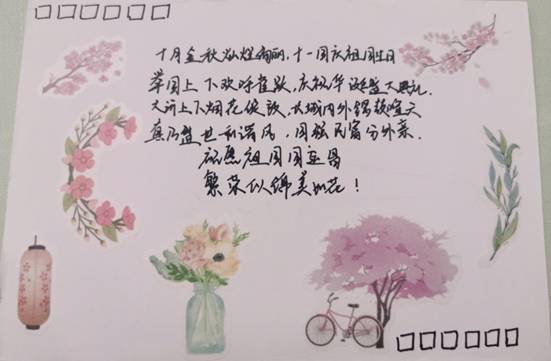 十月金秋灿烂绚丽，十一国庆祖国生日
举国上下欢呼雀跃，庆祝华诞盛大典礼.
大江上下烟花绽放，长城内外锣鼓喧天
真乃盛世和谐风，国强民富分外亲.
祝愿祖国国运昌
繁荣似锦美如花！